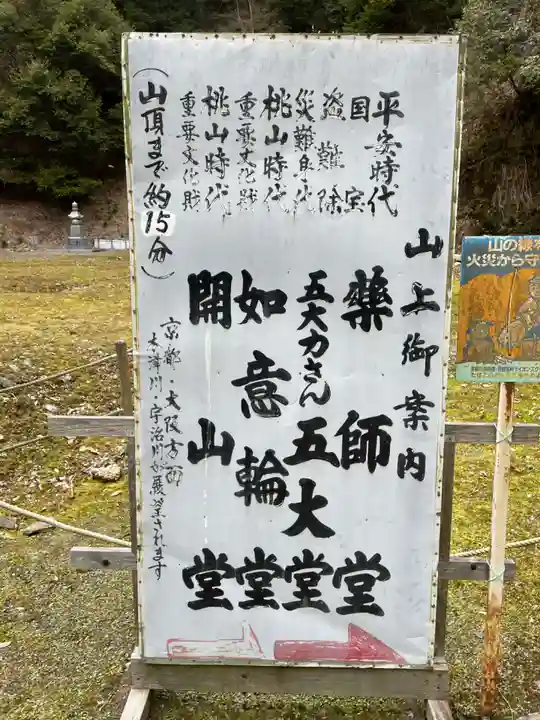 山上御案内
平安時代
国宝
薬師堂
盗難除
災難身代
五大力さん
五大堂
桃山時代
重要文化財
如意輪堂
桃山時代
重要文化財
開山堂
(山頂まで約15分)
京都・大阪方面
木津川・宇治川が展望されます
山の緑を
火災から守